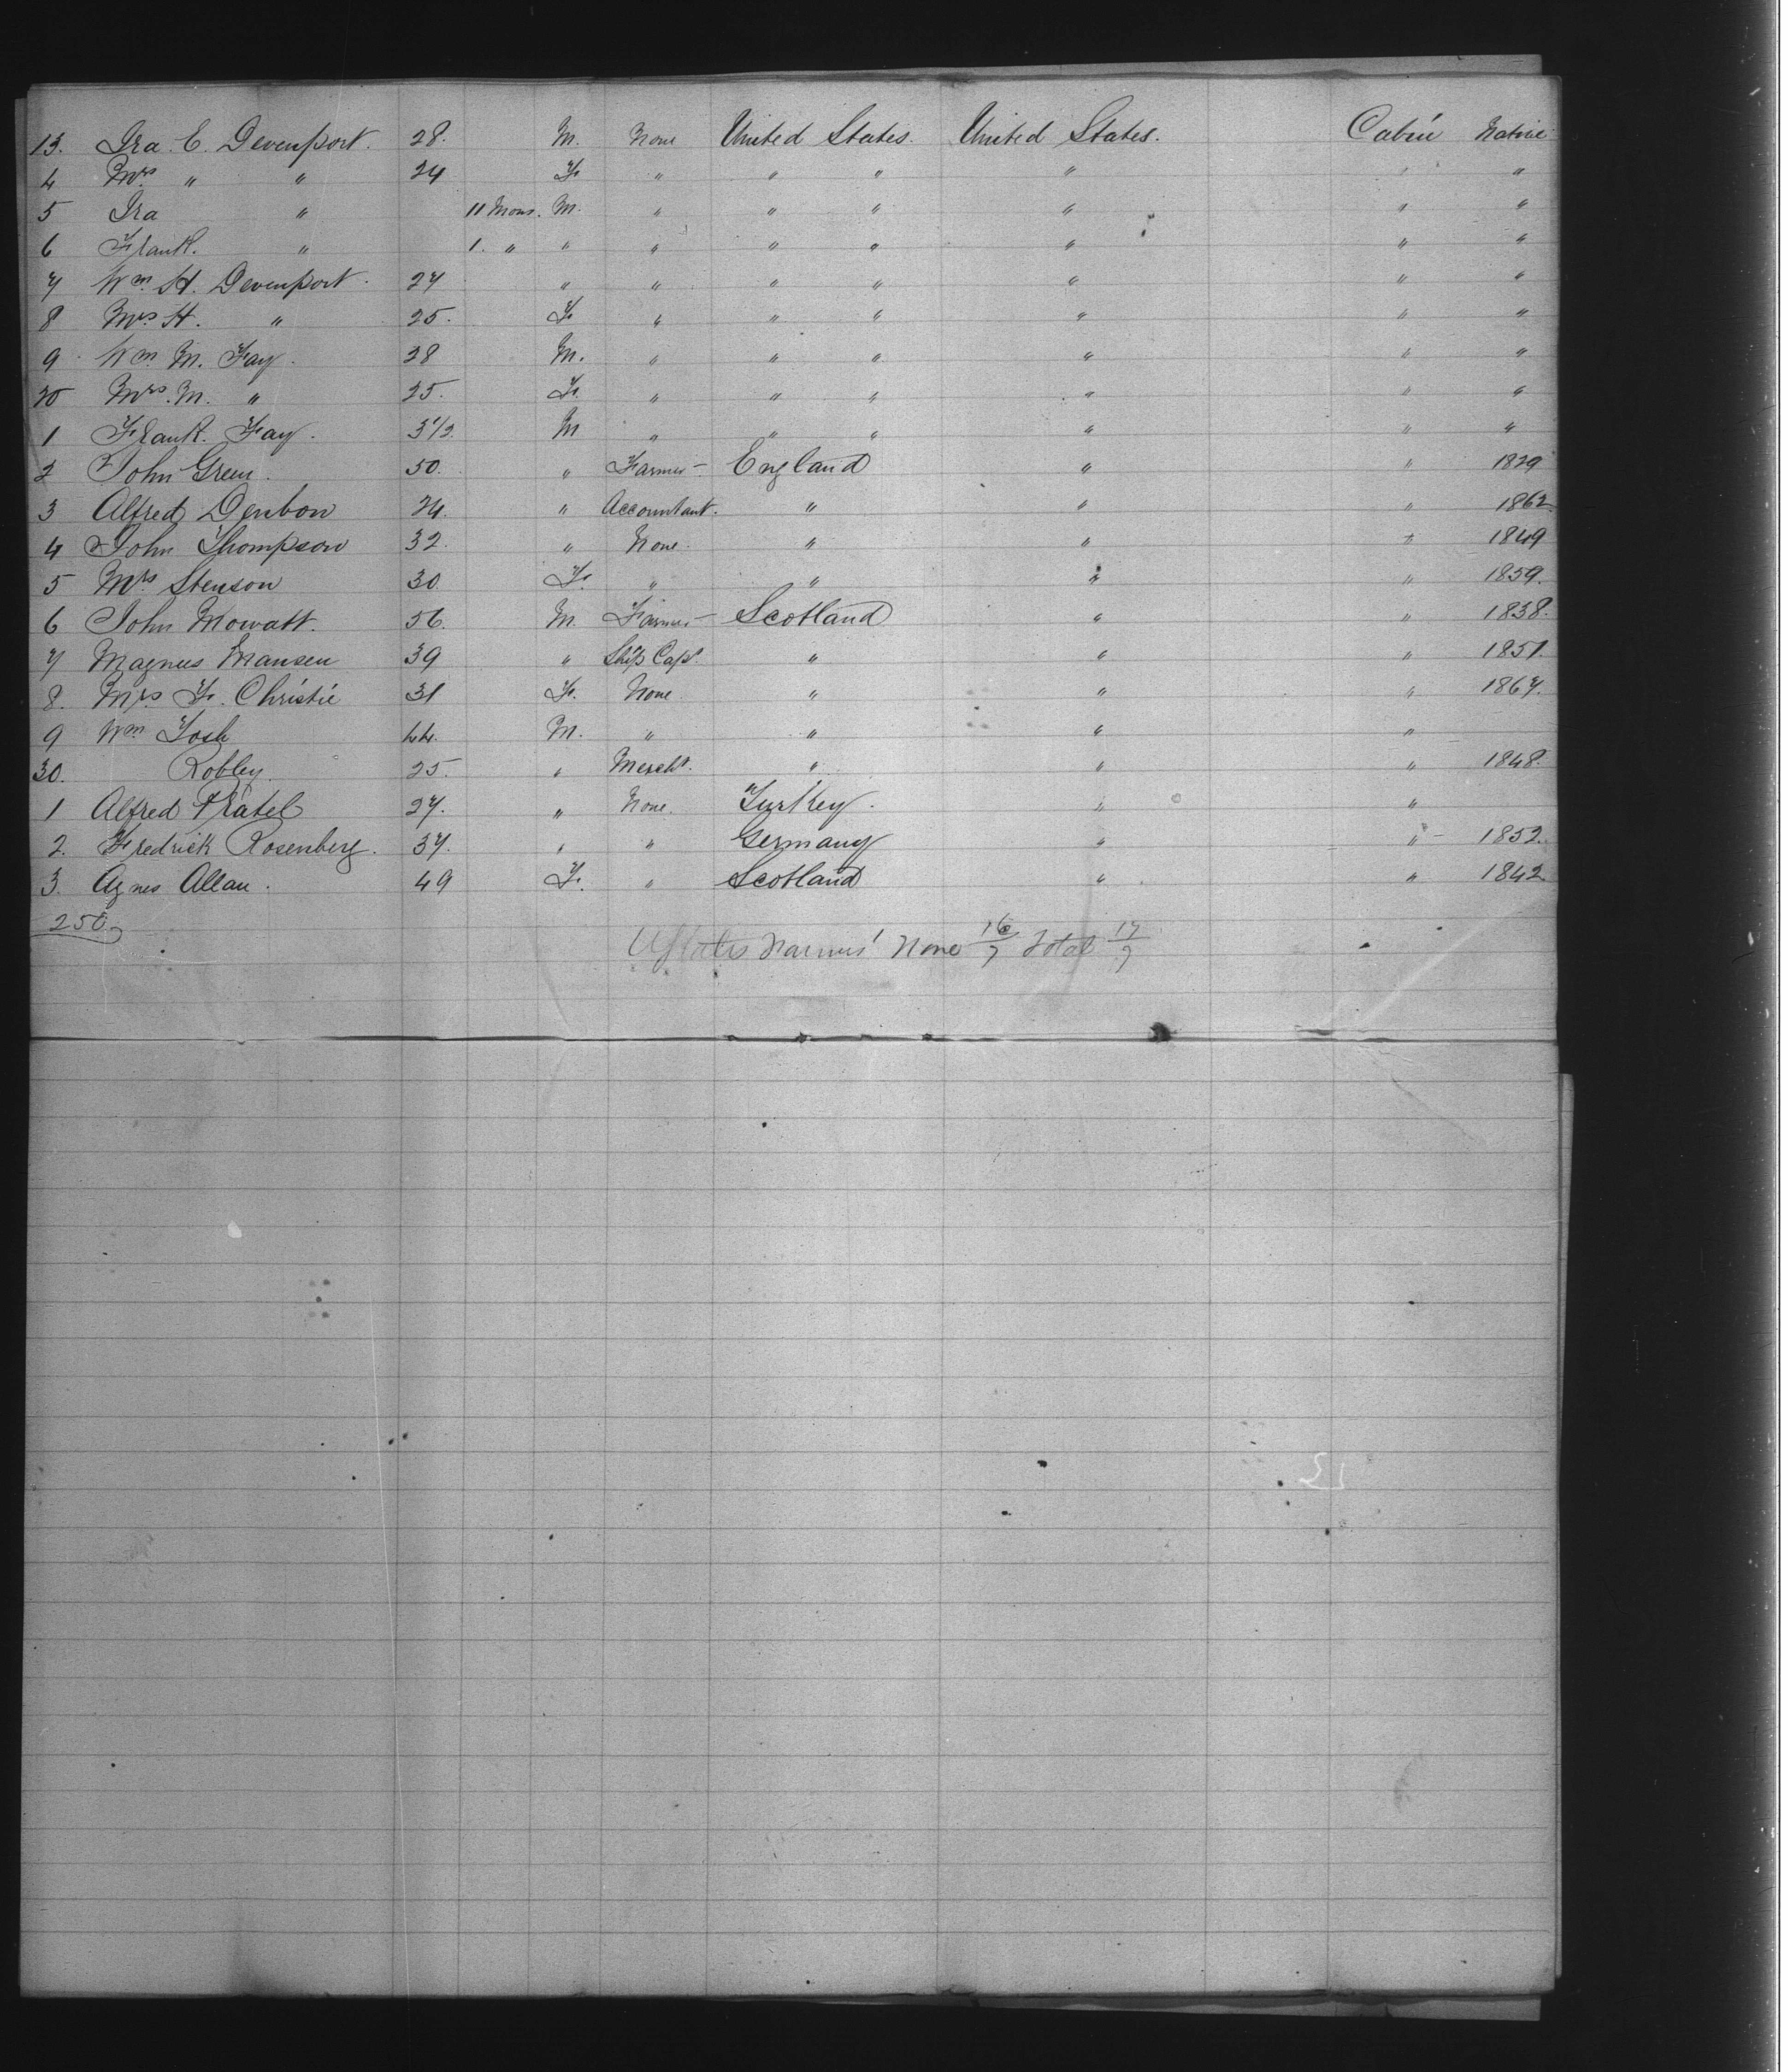 13. Ira. E. Devenport. 28. M. None United States. United States. Cabin Native
4 Mrs " " 24 F. " " " " " "
5 Ira " 11 Mons. M. " " " " " "
6 Frank. " 1. " " " " " " " "
7 Wm. H. Devenport. 27 " " " " " " "
8 Mrs. H. " 25. F. " " " " " "
9 Wm. M. Fay. 28 M. " " " " " "
20 Mrs. M. " 25. F. " " " " " "
1 Frank. Fay. 3 1/2. M " " " " " "
2 John Green. 50. " Farmer - England " " 1829
3 Alfred Denbow 24. " Accountant. " " " 1862.
4 John Thompson 32. " None. " " " 1849
5 Mrs Stenson 30. F. " " " " 1859.
6 John Mowatt. 56. M. Farmer - Scotland " " 1838.
7 Magnus Mansen 39 " Ship Capt. " " " 1851.
8. Mrs. F. Christie 31 F. None. " " " 1867.
9 Wm. 44. M. " " " "
30. Robley. 25. " Mercht. " " " 1848.
1 Alfred 27. " None. Turkey. " "
2. Fredrick Rosenberg. 37. " " Germany " " - 1852.
3. Agnes Allan. 49 F. " Scotland " " 1842.
250
None 16/7 Total 17/7